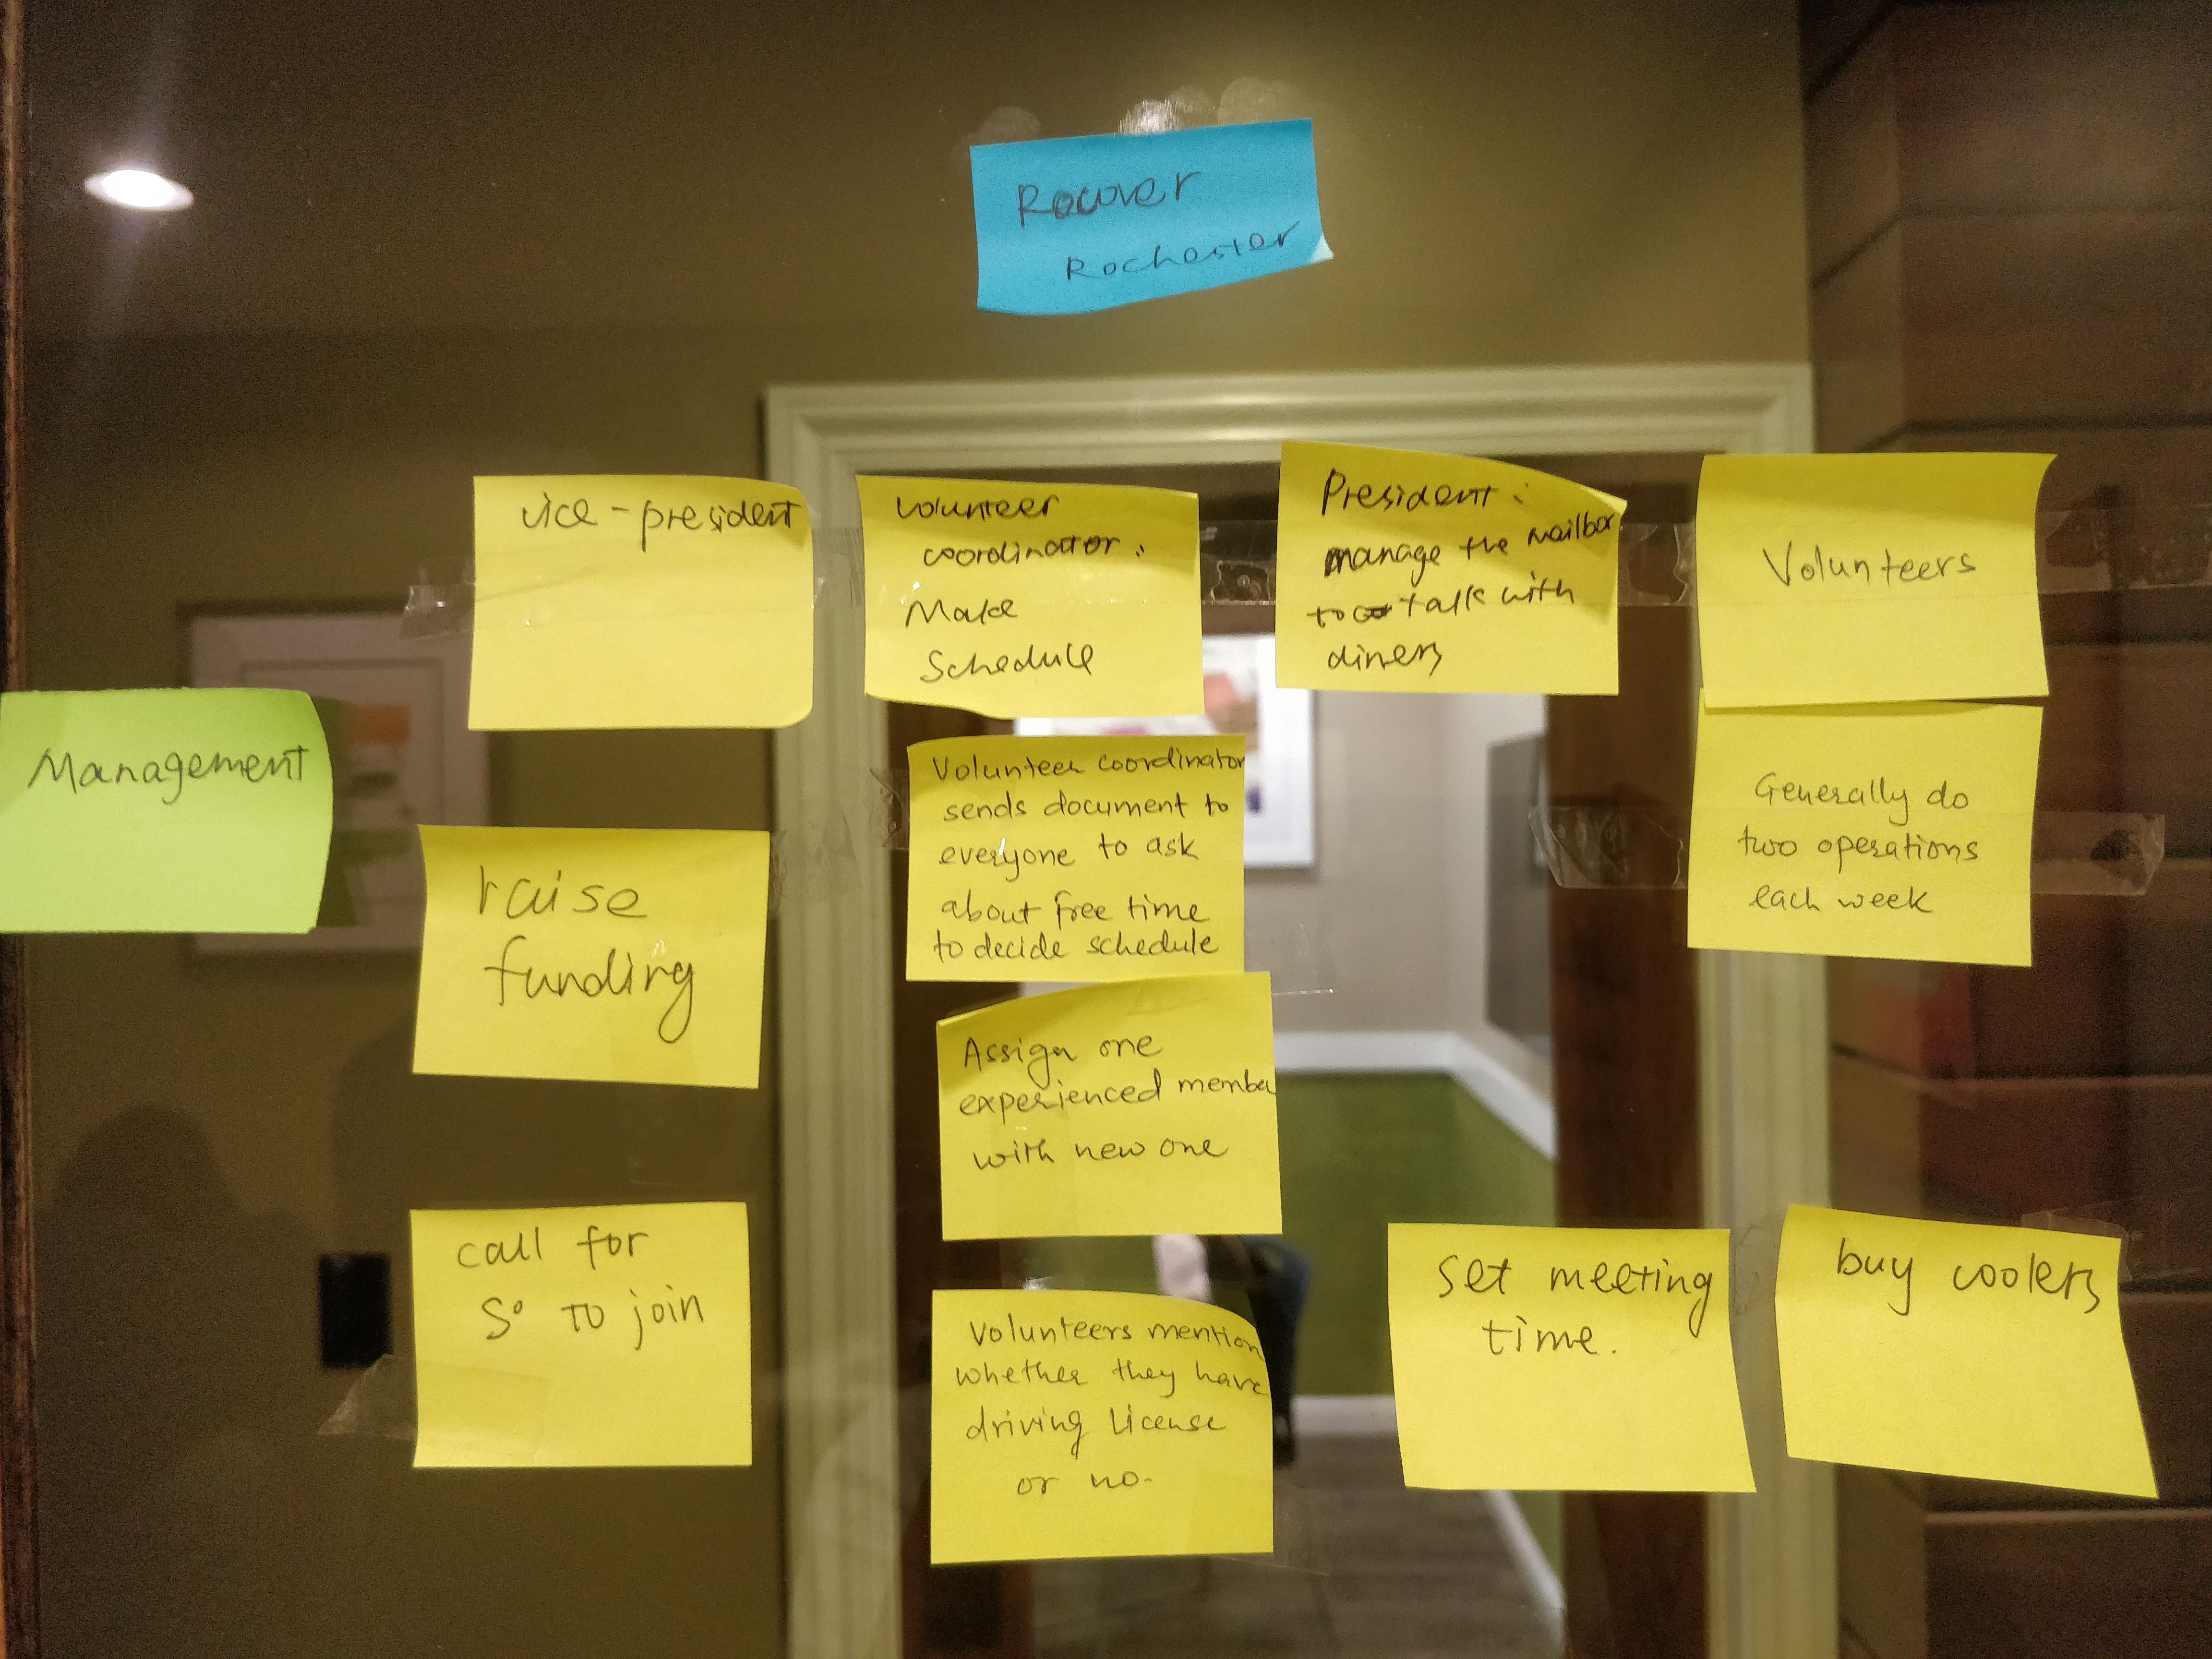 Recover
Rochester
Management
vice-president
raise
funding
call for
So to join
Volunteer
coordinator:
Make
Schedule
Volunteer coordinator
sends document to
everyone to ask
about free time
to decide schedule
Assign one
experienced member
with new one
Volunteers mention
whether they have
driving license
or no.
President:
manage the mailbox
to talk with
diners
set meeting
time.
Volunteers
Generally do
two operations
each week
buy coolers